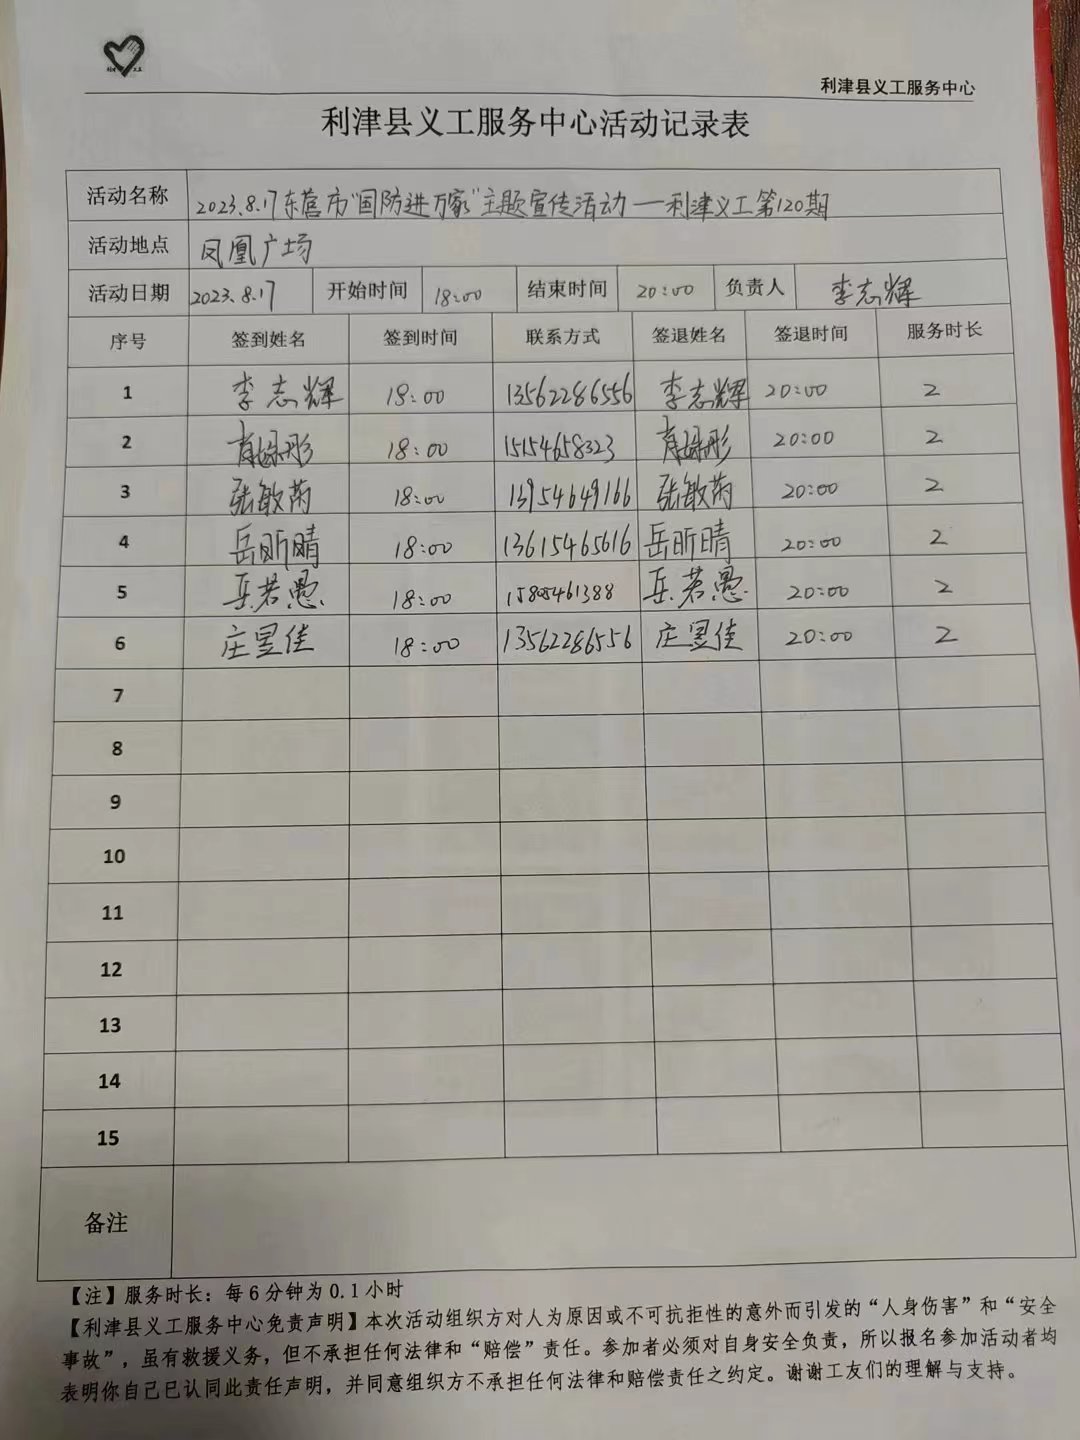 利津县义工服务中心
利津县义工服务中心活动记录表
活动名称 2023.8.17东营市“国防进万家”主题宣传活动—利津义工第120期
活动地点 凤凰广场
活动日期 2023.8.17 开始时间 18:00 结束时间 20:00 负责人 李志辉
序号 签到姓名 签到时间 联系方式 签退姓名 签退时间 服务时长
1 李志辉 18:00 13562286556 李志辉 20:00 2
2 18:00 15154658323 20:00 2
3 张敏芮 18:00 13954649166 张敏芮 20:00 2
4 岳昕晴 18:00 13615465616 岳昕晴 20:00 2
5 岳若愚 18:00 15805461388 岳若愚 20:00 2
6 庄昱佳 18:00 13562286556 庄昱佳 20:00 2
7
8
9
10
11
12
13
14
15
备注
【注】服务时长：每6分钟为0.1小时
【利津县义工服务中心免责声明】本次活动组织方对人为原因或不可抗拒性的意外而引发的“人身伤害”和“安全
事故”，虽有救援义务，但不承担任何法律和“赔偿”责任。参加者必须对自身安全负责，所以报名参加活动者均
表明你自己已认同此责任声明，并同意组织方不承担任何法律和赔偿责任之约定。谢谢工友们的理解与支持。